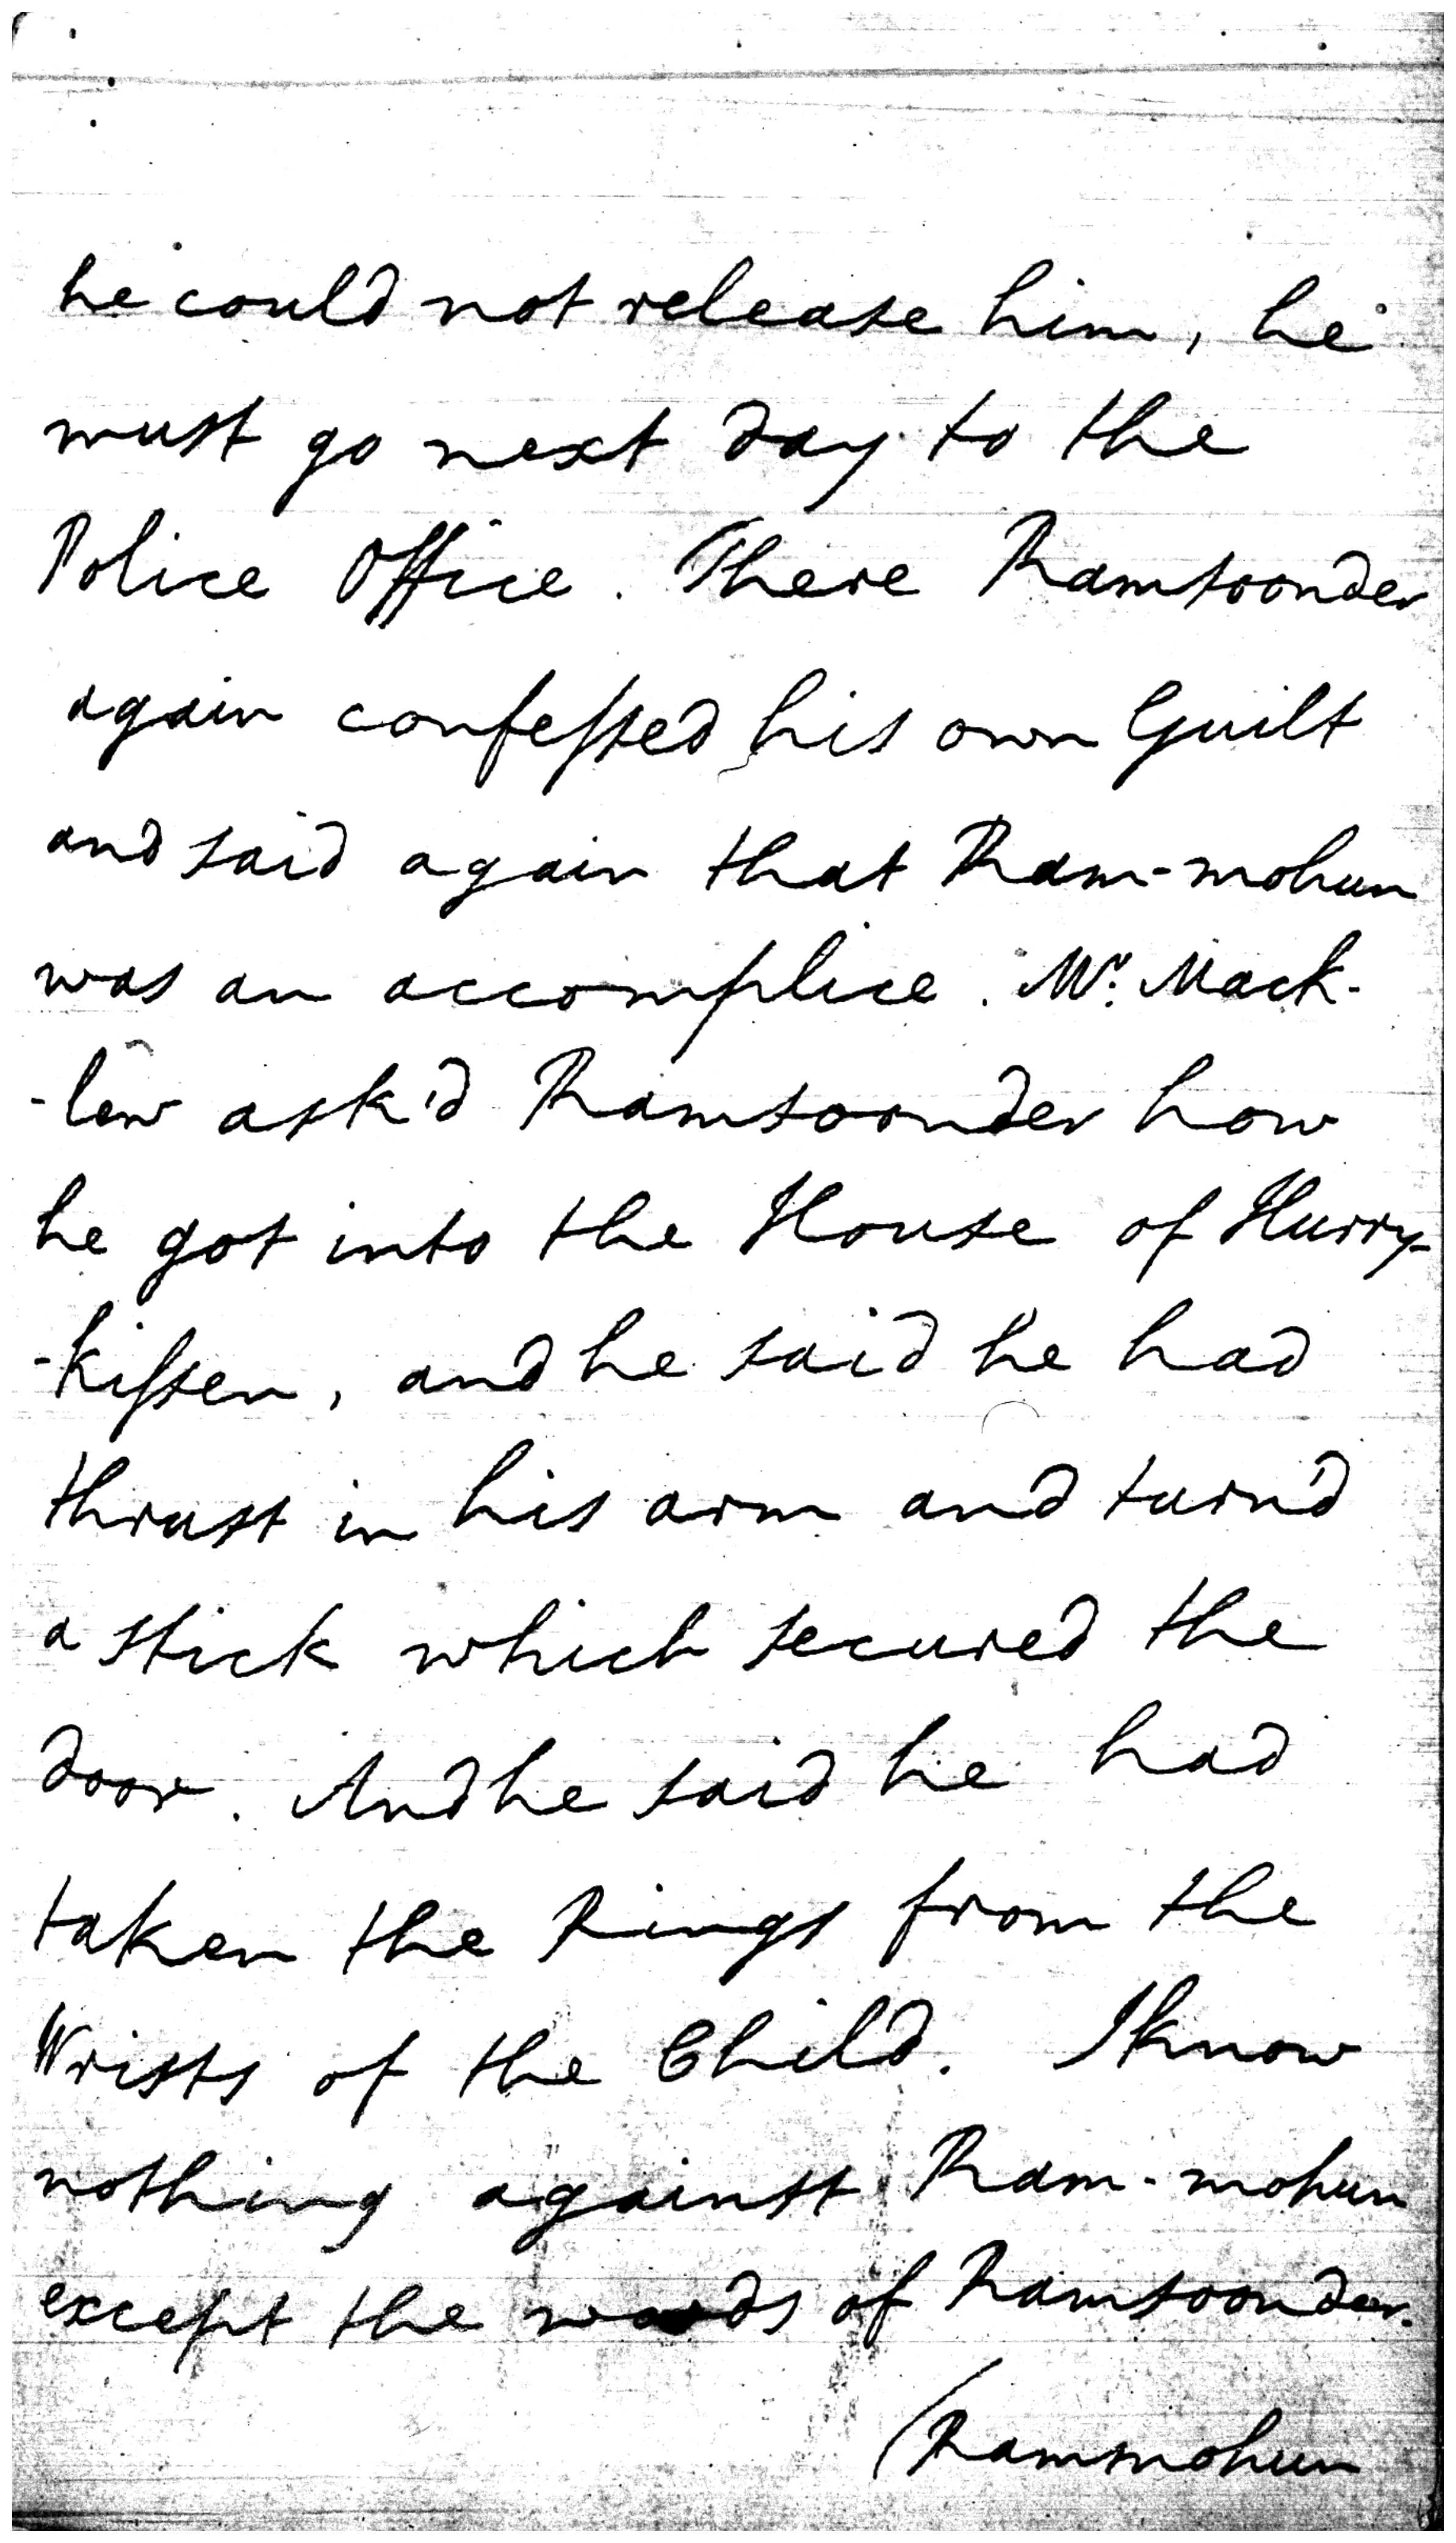 he could not release him, he
must go next day to the
Police Office. There Ramsoonder
again confessed his own Guilt
and said again that Ram-mohun
was an accomplice. Mr. Mack-
-lew ask'd Ramsoonder how
he got into the House of Hurry-
-kissen, and he said he had
thrust in his arm and turn'd
a stick which secured the
door. And he said he had
taken the Rings from the
Wrists of the Child. I know
nothing against Ram-mohun
except the words of Ramsoonder.
(Rammohun